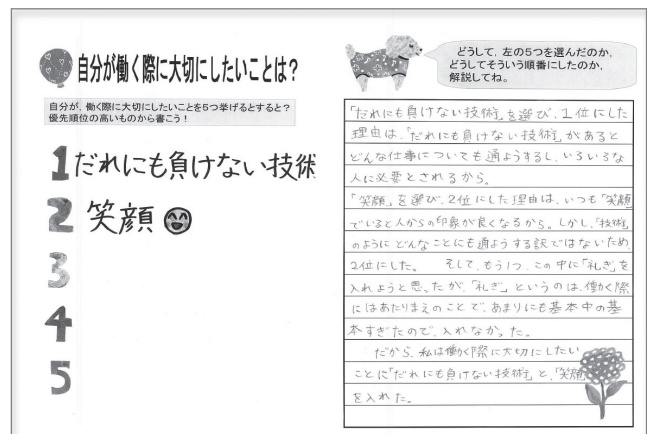 自分が働く際に大切にしたいことは?
自分が、働く際に大切にしたいことを5つ挙げるとすると?
優先順位の高いものから書こう!
1 だれにも負けない技術
2 笑顔
3
4
5
どうして、左の5つを選んだのか、
どうしてそういう順番にしたのか、
解説してね。
「だれにも負けない技術」を選び、1位にした
理由は、「だれにも負けない技術」があると
どんな仕事についても通ようするし、いろいろな
人に必要とされるから。
「笑顔」を選び、2位にした理由は、いつも「笑顔」
でいると人からの印象が良くなるから。しかし、「技術」
のように どんなことにも通ようする訳ではないため、
2位にした。 そして、もう1つ、この中に「礼ぎ」を
入れようと思ったが、「礼ぎ」というのは、働く際
にはあたりまえのことで、あまりにも基本中の基
本すぎたので、入れなかった。
だから、私は働く際に大切にしたい
ことに「だれにも負けない技術」と、「笑顔」
を入れた。